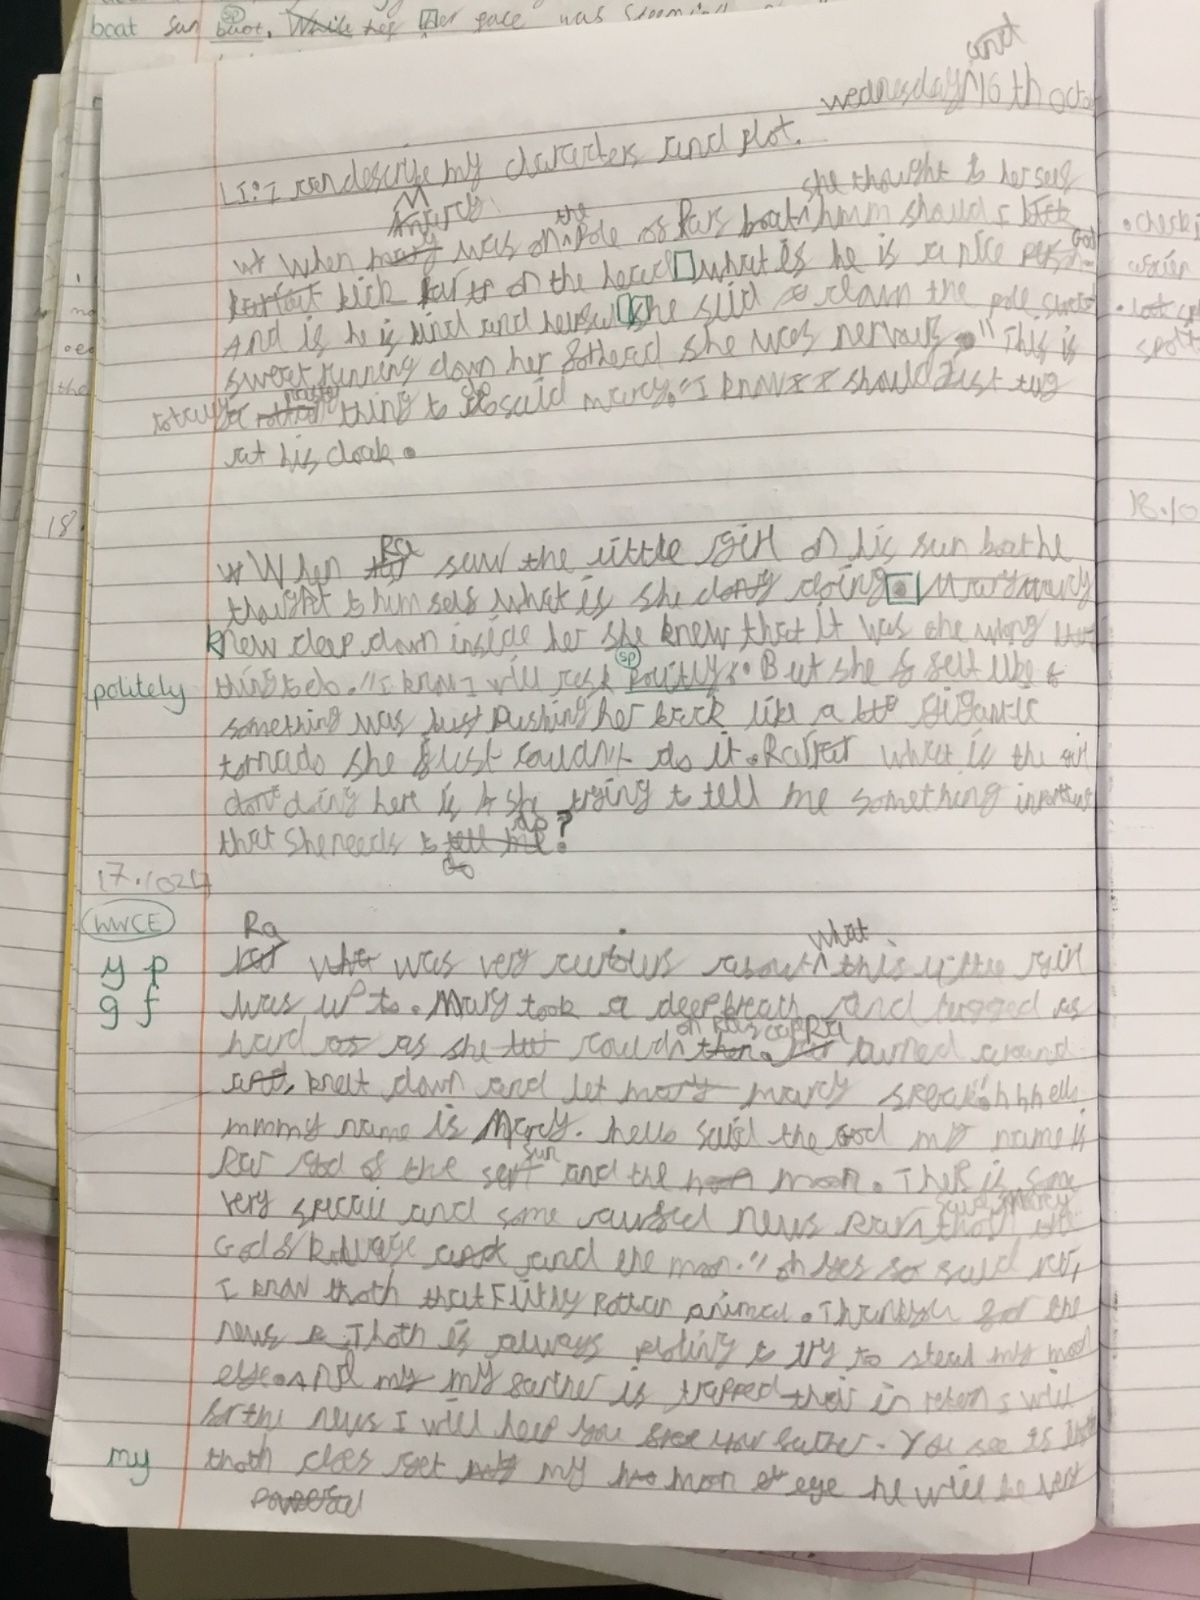 boat sun boot. While her Her face was seemed
and
wednesday 16th Octo
LI: I can describe my characters and plot.
she thought to herself
Marcy the
When mary was on Pole of Ras boat hmm should I
kick Ra on the head what if he is a nice person God
And is he is kind and helpful she slid down the pole sweat
sweat running down her forhead she was nervous. "This is
totaly a thing to do said marcy. "I know I I should Just tug
at his cloak.
Ra
When saw the little girl on his sun bathe
thought to himself what is she doing. Mary marcy
knew deep down inside her she knew that it was the wrong
politely
thing to do. "I know I will ask sp politly. But she felt like
something was Just Pushing her back like a gigantic
tornado she Just couldn't do it. Ra what is the girl
doing here is she trying to tell me something important
that she needs to tell me do?
do
17.10.24
WWCE
y p
g f
Ra what
was very curious about this little girl
was up to. Mary took a deep breath and tugged as
on Ras cape Ra
hard as as she could then. turned around
and, knelt down and let mary marcy speak. "hhhello
mmmy name is Marcy. hello said the God my name is
Ra God of the sun and the moon. Ther is some
very speciall and some news Ra said marcy
God of and and the moon. "oh yes so said ra,
I know thoth that Filthy Rotten animal. Thankyou for the
news Thoth is always ploting to try to steal my moon
eye. And my my father is trapped their in retern I will
for the news I will help you free your father. You see if
my
thoth does get my my moon eye he will be very
powerful
18.10
18
checki
spott
the